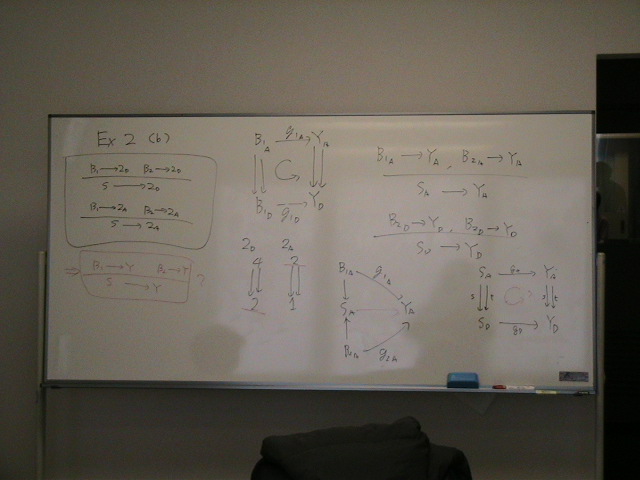 Ex 2 (b)
B₁ → 2_D   B₂ → 2_D
S → 2_D
B₁ → 2_A   B₂ → 2_A
S → 2_A
⇒ B₁ → Y   B₂ → Y ?
S → Y
B₁A g₁A → Y_A
B₁D g₁D → Y_D
2_D   2_A
4   2
2   1
B₁A → Y_A , B₂A → Y_A
S_A → Y_A
B₂D → Y_D , B₂D → Y_D
S_D → Y_D
B₁A g₁A
S_A → Y_A
B₂A g₂A
S_A → Y_A
s t   s t
S_D g_D → Y_D